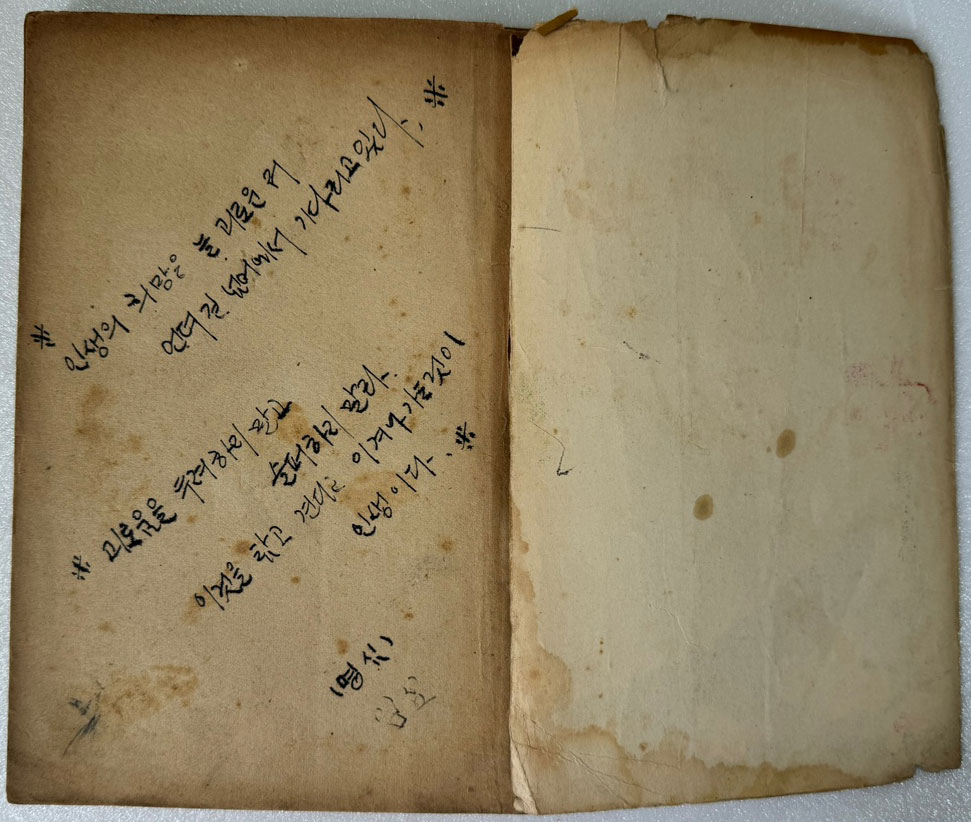 ※ 인생의 희망은 늘 괴로운 거
언덕길 넘어에서 기다리고 있다. ※
※ 괴로움을 두려하리 말고
슬퍼하리 말라.
이것을 참고 견디는 이겨나가는 것이
인생이다. ※